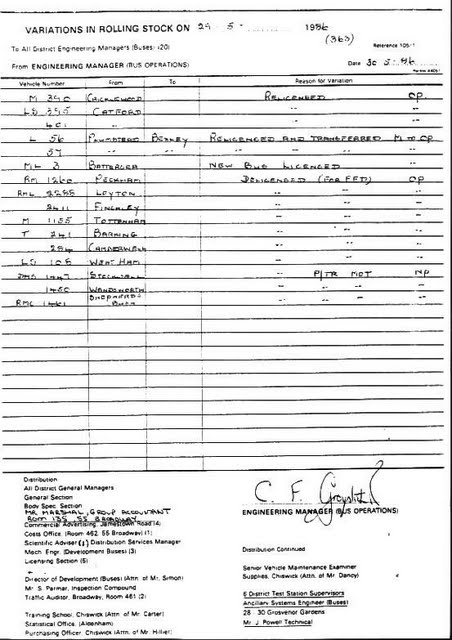 VARIATIONS IN ROLLING STOCK ON 29 - 5 - 1986
(363)
To All District Engineering Managers (Buses) (20)
Reference 105/1
From ENGINEERING MANAGER (BUS OPERATIONS)
Date 30 5 86
Vehicle Number From To Reason for Variation
M 390 CRICKLEWOOD RELICENSED OP
LS 395 CATFORD " "
401 " " "
L 56 PLUMSTEAD BEXLEY RELICENSED AND TRANSFERRED M to OP
57 " " " "
ML 3 BATTERSEA NEW BUS LICENSED
RM 1260 PECKHAM DELICENSED (FOR FFD) OP
RML 2285 LEYTON " " "
2411 FINCHLEY " " "
M 1155 TOTTENHAM " " "
T 241 BARKING " " "
294 CAMBERWELL " " "
LS 108 WEST HAM " " "
DMS STOCKWELL " P/TR MOT NP
1450 WANDSWORTH " " "
RMC 1461 SHEPHERDS BUSH " " "
Distribution
All District General Managers
General Section
Body Spec Section
MR MARSHAL, GROUP ACCOUNTANT
ROOM 135, 55 BROADWAY
Commercial Advertising, Jamestown Road (4)
Costs Office, (Room 462, 55 Broadway) (1)
Scientific Adviser (1) Distribution Services Manager
Mech. Engr. (Development Buses) (3)
Licensing Section (6)
Director of Development (Buses) (Attn. of Mr. Simon)
Mr. S. Parmar, Inspection Compound
Traffic Auditor, Broadway, Room 461 (2)
Training School, Chiswick (Attn. of Mr. Carter)
Statistical Office, (Aldenham)
Purchasing Officer, Chiswick (Attn. of Mr. Hillier)
C. F.
ENGINEERING MANAGER (BUS OPERATIONS)
Distribution Continued
Senior Vehicle Maintenance Examiner
Supplies, Chiswick (Attn. of Mr. Dancy)
6 District Test Station Supervisors
Ancillary Systems Engineer (Buses)
28 30 Grosvenor Gardens
Mr. J. Powell Technical